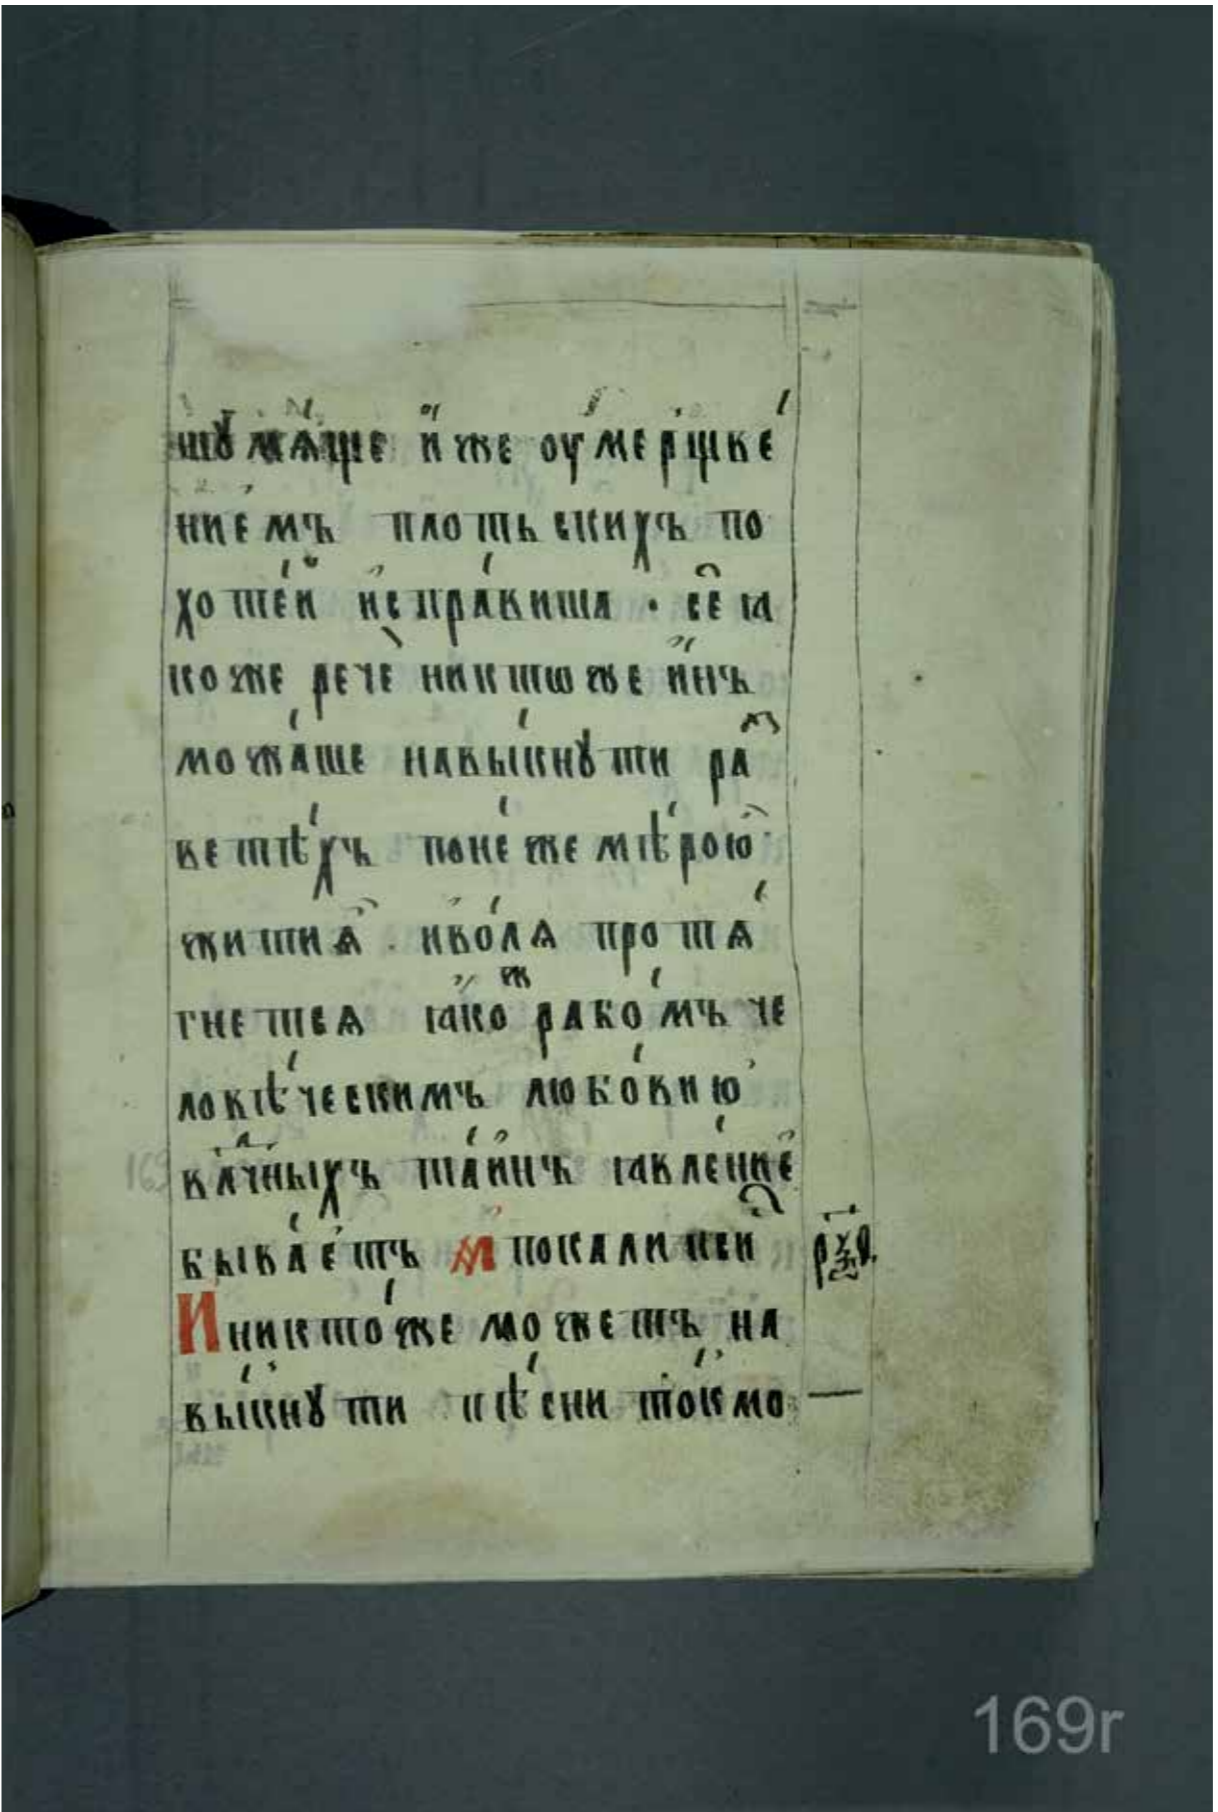 шꙋмѧ́ще и҆́же оу҆мерщве́
ниемъ плотьскихъ по
хоте́й и҆спра́виша · се꙯ ꙗ
коже речѐ никтоже и҆́нъ
можа́ше навы́кнꙋти раⷥ
ве тѣ́хъ поне́же мѣ́рою
жития҆ . иво́лѧ протѧ́
гнетсѧ ꙗ҆коⷤ рабо́мъ че
ловѣ́ческимъ любо́вию
та́инъ ꙗвле́ние
быва́етъ
И никто́же можетъ на
вы́кнꙋти пѣ́сни то́кмо
169r